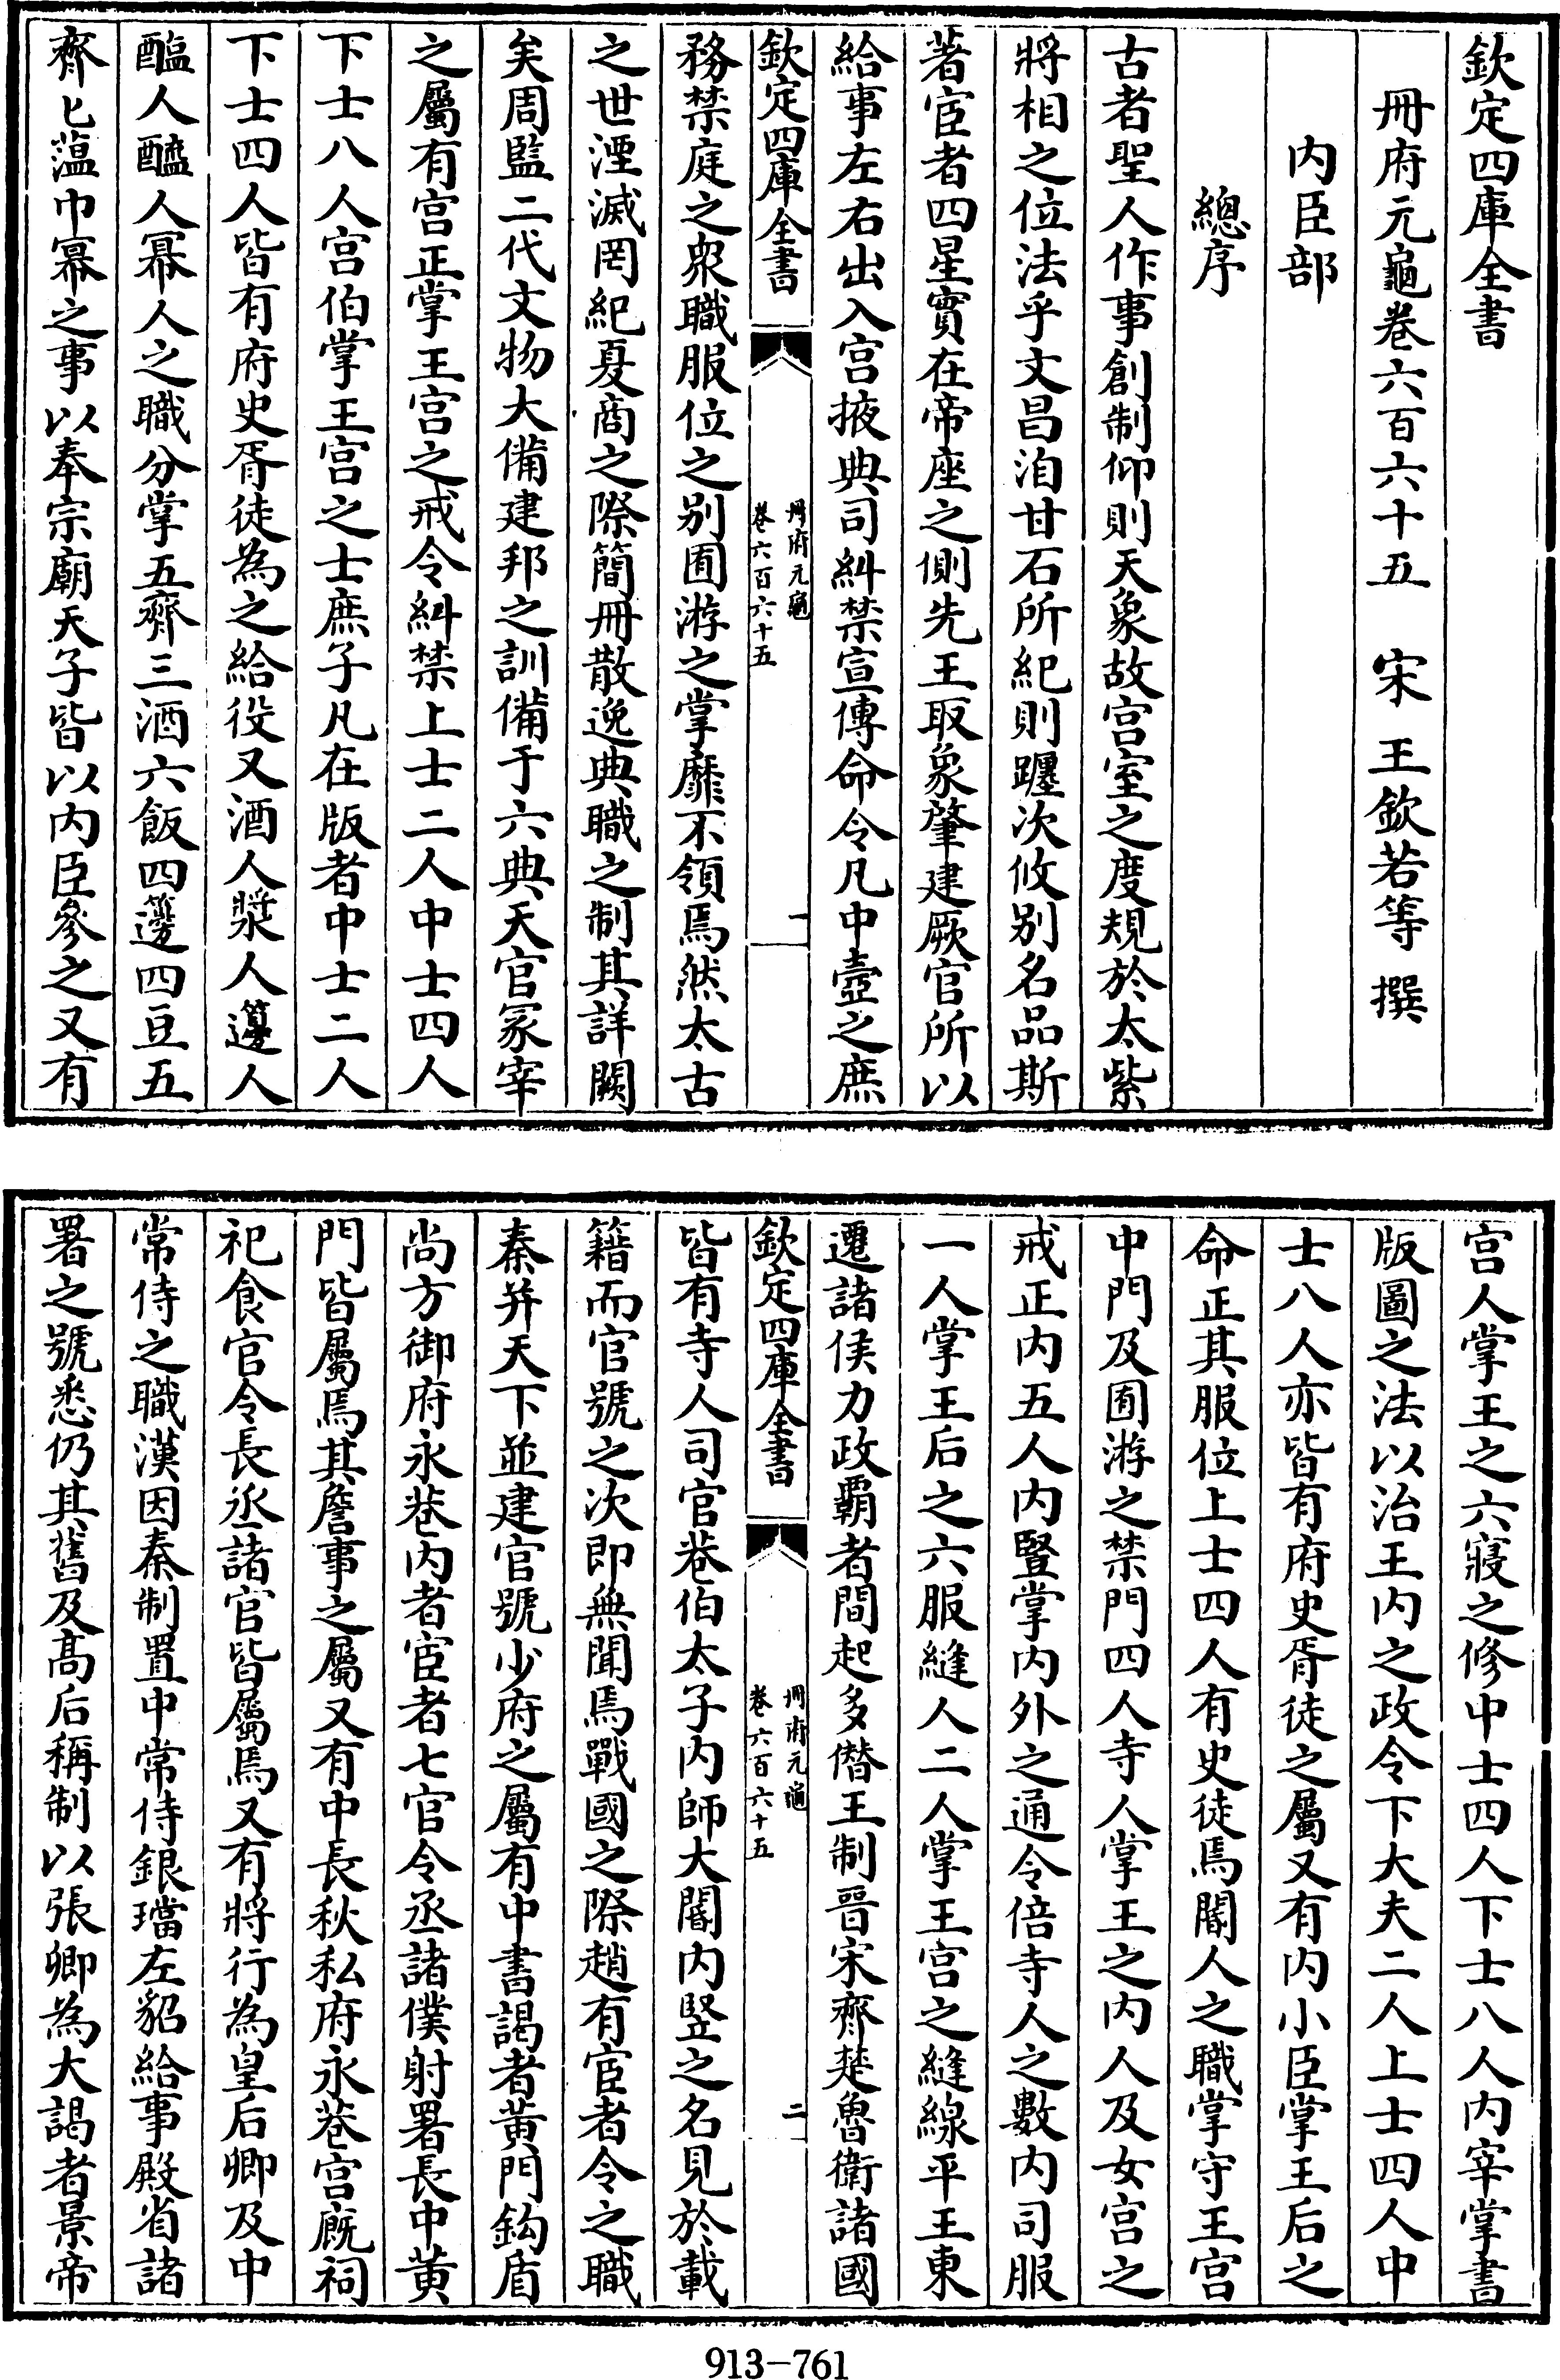 欽定四庫全書
冊府元龜卷六百六十五　宋　王欽若等　撰
内臣部
總序
古者聖人作事創制仰則天象故宫室之度規於太紫
將相之位法乎文昌洎甘石所紀則躔次攸别名品斯
著宦者四星實在帝座之側先王取象肇建厥官所以
給事左右出入宫掖典司糾禁宣傳命令凡中壼之庶
欽定四庫全書
冊府元龜
卷六百六十五
一
務禁庭之衆職服位之别囿游之掌靡不領焉然太古
之世湮滅罔紀夏商之際簡冊散逸典職之制其詳闕
矣周監二代文物大備建邦之訓備于六典天官冢宰
之屬有宫正掌王宫之戒令糾禁上士二人中士四人
下士八人宫伯掌王宫之士庶子凡在版者中士二人
下士四人皆有府史胥徒為之給役又酒人漿人籩人
醢人醯人冪人之職分掌五齊三酒六飯四籩四豆五
齊七葅巾冪之事以奉宗廟天子皆以内臣參之又有
宫人掌王之六寢之修中士四人下士八人内宰掌書
版圖之法以治王内之政令下大夫二人上士四人中
士八人亦皆有府史胥徒之屬又有内小臣掌王后之
命正其服位上士四人有史徒焉閽人之職掌守王宫
中門及囿游之禁門四人寺人掌王之内人及女宫之
戒正内五人内豎掌内外之通令倍寺人之數内司服
一人掌王后之六服縫人二人掌王宫之縫線平王東
遷諸侯力政覇者間起多僭王制晉宋齊楚魯衛諸國
欽定四庫全書
冊府元龜
卷六百六十五
二
皆有寺人司官巷伯太子内師大閽内竪之名見於載
籍而官號之次即無聞焉戰國之際趙有宦者令之職
秦并天下並建官號少府之屬有中書謁者黄門鈎盾
尚方御府永巷内者宦者七官令丞諸僕射署長中黄
門皆屬焉其詹事之屬又有中長秋私府永巷宫廐祠
祀食官令長丞諸官皆屬焉又有將行為皇后卿及中
常侍之職漢因秦制置中常侍銀璫左貂給事殿省諸
署之號悉仍其舊及髙后稱制以張卿為大謁者景帝
913-761